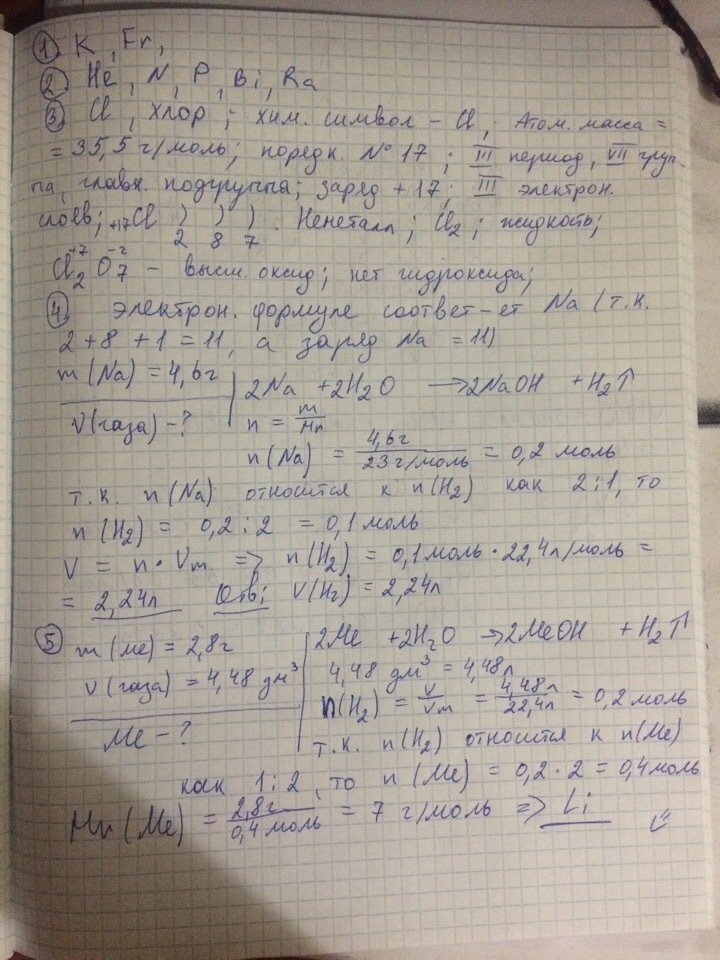 1. K, Fr,
2. He, N, P, Bi, Ra
3. Cl, хлор; хим. символ – Cl; Атом. масса =
= 35,5 г/моль; порядк. № 17; III период, VII груп-
па, главн. подгруппа; заряд +17; III электрон.
слоев; +17Cl ) ) ) . Неметалл; Cl₂; жидкость;
2 8 7
+7 -2
Cl₂O₇ – высш. оксид; нет гидроксида;
4. электрон. формуле соответ-ет Na (т.к.
2+8+1=11, а заряд Na = 11)
m(Na) = 4,6г
2Na + 2H₂O → 2NaOH + H₂↑
V(газа) – ?
n = m/Mr
n(Na) = 4,6г/23 г/моль = 0,2 моль
т.к. n(Na) относится к n(H₂) как 2:1, то
n(H₂) = 0,2 : 2 = 0,1 моль
V = n · Vm => n(H₂) = 0,1 моль · 22,4л/моль =
= 2,24л Отв: V(H₂) = 2,24л
5. m(Me) = 2,8г
2Me + 2H₂O → 2MeOH + H₂↑
V(газа) = 4,48 дм³
4,48 дм³ = 4,48л
n(H₂) = V/Vm = 4,48л/22,4л = 0,2 моль
Me – ?
т.к. n(H₂) относится к n(Me)
как 1:2, то n(Me) = 0,2 · 2 = 0,4 моль
Mr(Me) = 2,8г/0,4 моль = 7 г/моль => Li